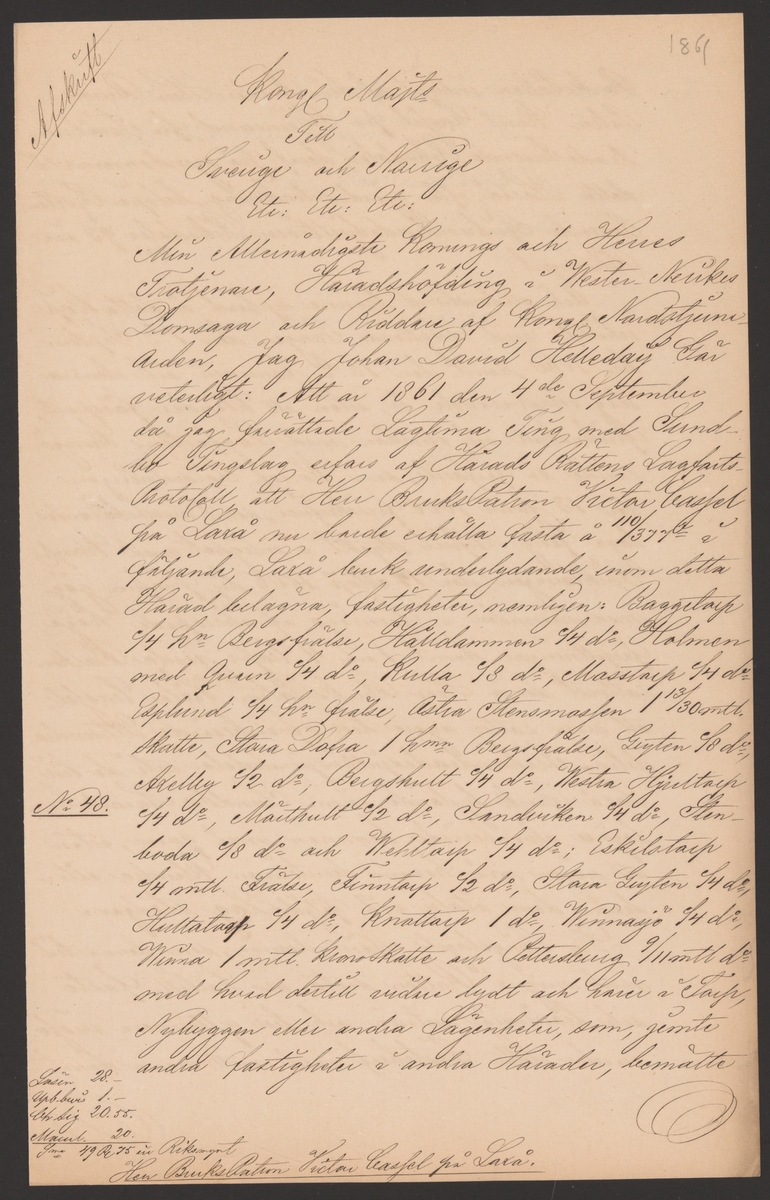 1861
Afskrift
Kongl Majts
Till
Sverige och Norrige
Etc: Etc: Etc:
Min Allernådigste Konungs och Herres
Trotjenare, Häradshöfding i Wester-Nerikes
Domsaga och Riddare af Kongl Nordstjerne-
orden, Jag Johan David Helleday Gör
veterligt: Att år 1861 den 4de September
då jag förrättade Lagtima Ting med Sund-
bo Tingslag, erfors af Härads Rättens Lagfarts-
Protocoll att Herr BruksPatron Victor Cassel
på Laxå nu borde erhålla fasta å 110/377 i
följande, Laxå bruk underlydande, inom detta
Härad belägna, fastigheter, nemligen: Baggetorp
1/4 hn Bergsfrälse, Hålldammen 1/4 do, Holmen
med Qvarn 1/4 do, Kulla 1/8 do, Mosstorp 1/4 do
Esplund 1/4 hn frälse, Östra Stensmossen 1 13/30 mtl.
Skatte, Stora Dofra 1 hmn Bergsfrälse, Gryten 1/8 do,
Axelby 1/2 do, Bergshult 1/4 do, Westra Hjortorp
1/4 do, Mörthult 1/2 do, Sandviken 1/4 do, Sten-
boda 1/8 do och Wehltorp 1/4 do; Eskilstorp
1/4 mtl. Frälse, Finntorp 1/2 do, Stora Gryten 1/4 do,
Hultatorp 1/4 do, Knottorp 1 do, Winnasjö 1/4 do,
No 48.
Winna 1 mtl. kronoskatte och Pettersburg 9/11 mtl do
med hvad dertill vidare lydt och hörer i Torp,
Nybyggen eller andra Lägenheter, som, jemte
andra fastigheter i andra Härader, bemälte
Lösen 28.-
Uppb.bevis 1.-
Ch sig 20.55.
20.
Sma 49 Rd 75 öre Riksmynt
Herr BruksPatron Victor Cassel på Laxå.